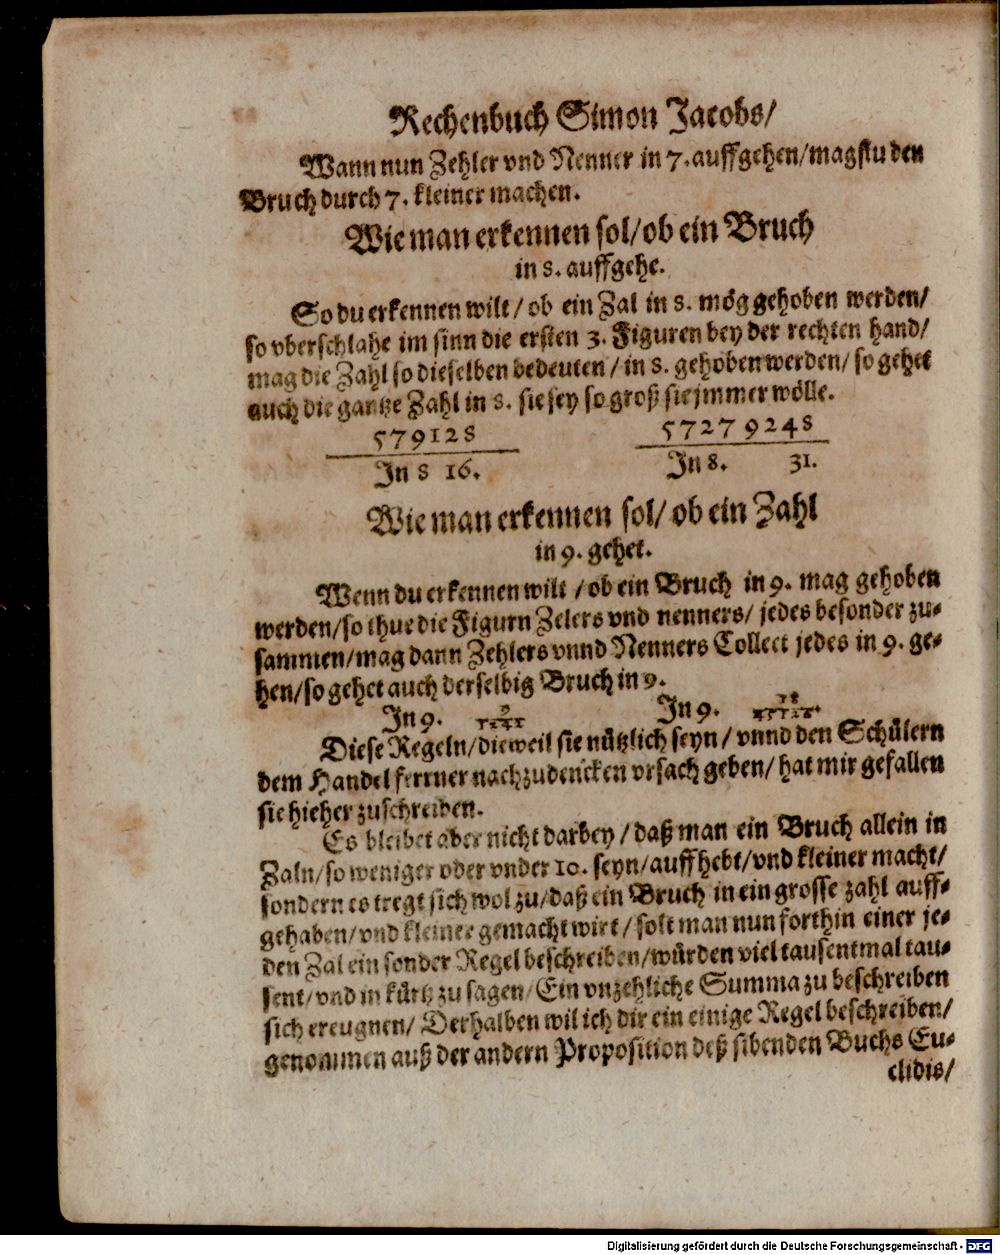 Rechenbuch Simon Jacobs/
Wann nun Zehler vnd Nenner in 7. auffgehen/magstu den
Bruch durch 7. kleiner machen.
Wie man erkennen sol/ob ein Bruch
in 8. auffgehe.
So du erkennen wilt/ ob ein Zal in 8. mög gehoben werden/
so vberschlahe im sinn die ersten 3. Figuren bey der rechten hand/
mag die Zahl so dieselben bedeuten / in 8. gehoben werden/ so gehet
auch die gantze Zahl in 8. sie sey so groß sie jmmer wölle.
579128 5727 9248
In 8 16. In 8. 31.
Wie man erkennen sol/ ob ein Zahl
in 9. gehet.
Wenn du erkennen wilt / ob ein Bruch in 9. mag gehoben
werden/so thue die Figurn Zelers vnd nenners/ jedes besonder zu-
sammen/mag dann Zehlers vnnd Nenners Collect jedes in 9. ge-
hen/so gehet auch derselbig Bruch in 9.
In 9. In 9.
Diese Regeln/dieweil sie nützlich seyn/ vnnd den Schülern
dem Handel ferrner nachzudencken vrsach geben/ hat mir gefallen
sie hieher zuschreiben.
Es bleibet aber nicht darbey / daß man ein Bruch allein in
Zaln/so weniger oder vnder 10. seyn/auffhebt/vnd kleiner macht/
sondern es tregt sich wol zu/daß ein Bruch in ein grosse zahl auff-
gehaben/vnd kleiner gemacht wirt / solt man nun forthin einer je-
den Zal ein sonder Regel beschreiben/würden viel tausentmal tau-
sent/vnd in kürtz zu sagen/Ein vnzehliche Summa zu beschreiben
sich ereugnen/ Derhalben wil ich dir ein einige Regel beschreiben/
genommen auß der andern Proposition deß sibenden Buchs Eu-
clidis/
Digitalisierung gefördert durch die Deutsche Forschungsgemeinschaft - DFG